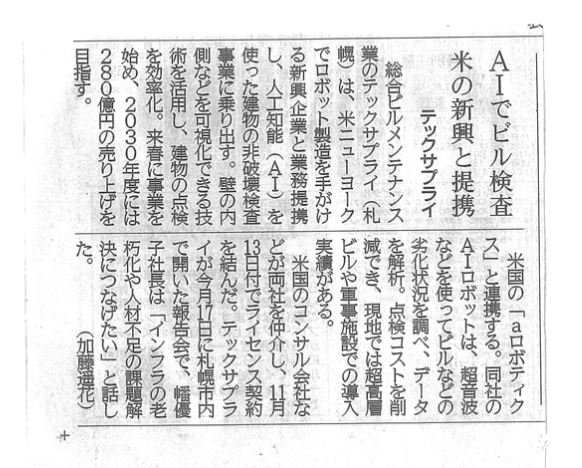 AIでビル検査
米の新興と提携
テックサプライ
総合ビルメンテナンス
業のテックサプライ（札
幌）は、米ニューヨーク
でロボット製造を手がけ
る新興企業と業務提携
し、人工知能（AI）を
使った建物の非破壊検査
事業に乗り出す。壁の内
側などを可視化できる技
術を活用し、建物の点検
を効率化。来春に事業を
始め、2030年度には
280億円の売り上げを
目指す。
米国の「aロボティク
ス」と連携する。同社の
AIロボットは、超音波
などを使ってビルなどの
劣化状況を調べ、データ
を解析。点検コストを削
減でき、現地では超高層
ビルや軍事施設での導入
実績がある。
米国のコンサル会社な
どが両社を仲介し、11月
13日付でライセンス契約
を結んだ。テックサプラ
イが今月17日に札幌市内
で開いた報告会で、幡優
子社長は「インフラの老
朽化や人材不足の課題解
決につなげたい」と話し
た。
（加藤遥花）